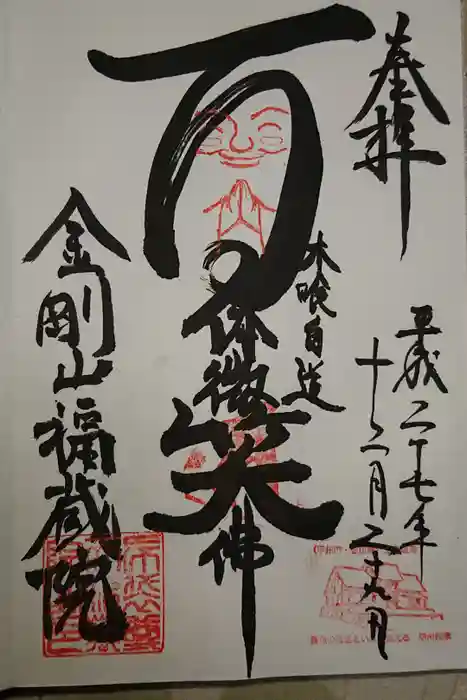 奉拝
平成二十七年
十二月二十九日
木喰自造
百体微笑佛
金剛山福蔵院